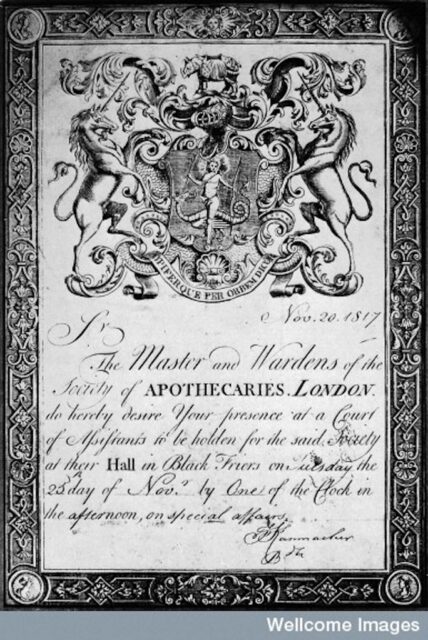 OPIFERQUE PER ORBEM DICOR
Nov. 20. 1817
Sir
The Master and Wardens of the
Society of APOTHECARIES. LONDON.
do hereby desire Your presence at a Court
of Assistants to be holden for the said Society
at their Hall in Black Friers on Tuesday the
25 day of Nov.r by One of the Clock in
the afternoon, on special affairs.
Wellcome Images